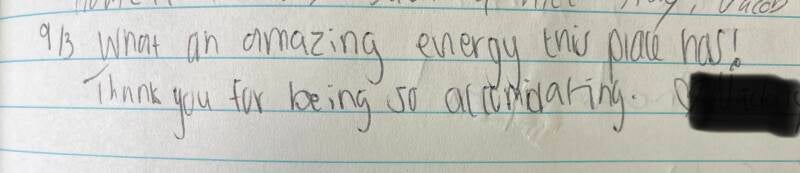 9/3 What an amazing energy this place has!
Thank you for being so accomidating.